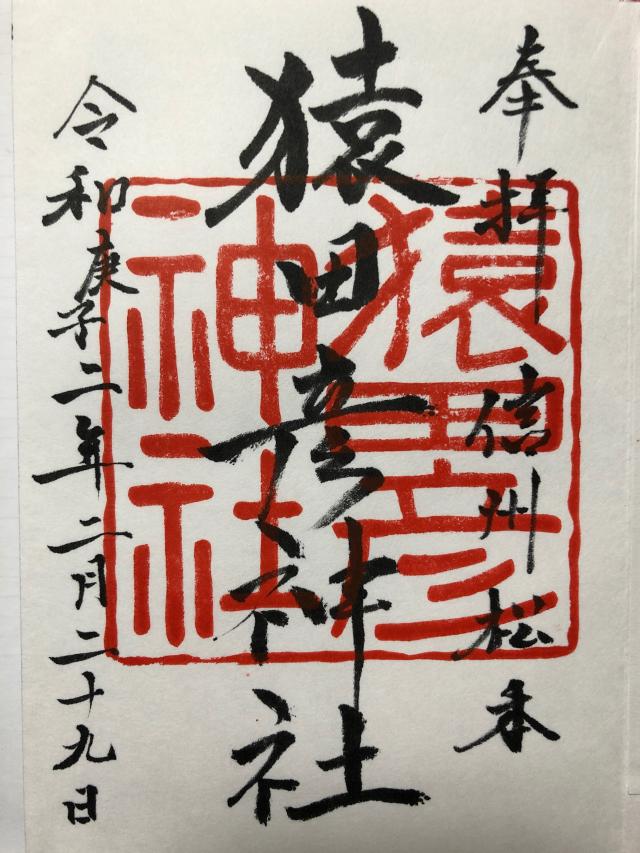 奉拝 信州松本
猿田彦神社
猿田彦
神社
令和庚子二年二月二十九日